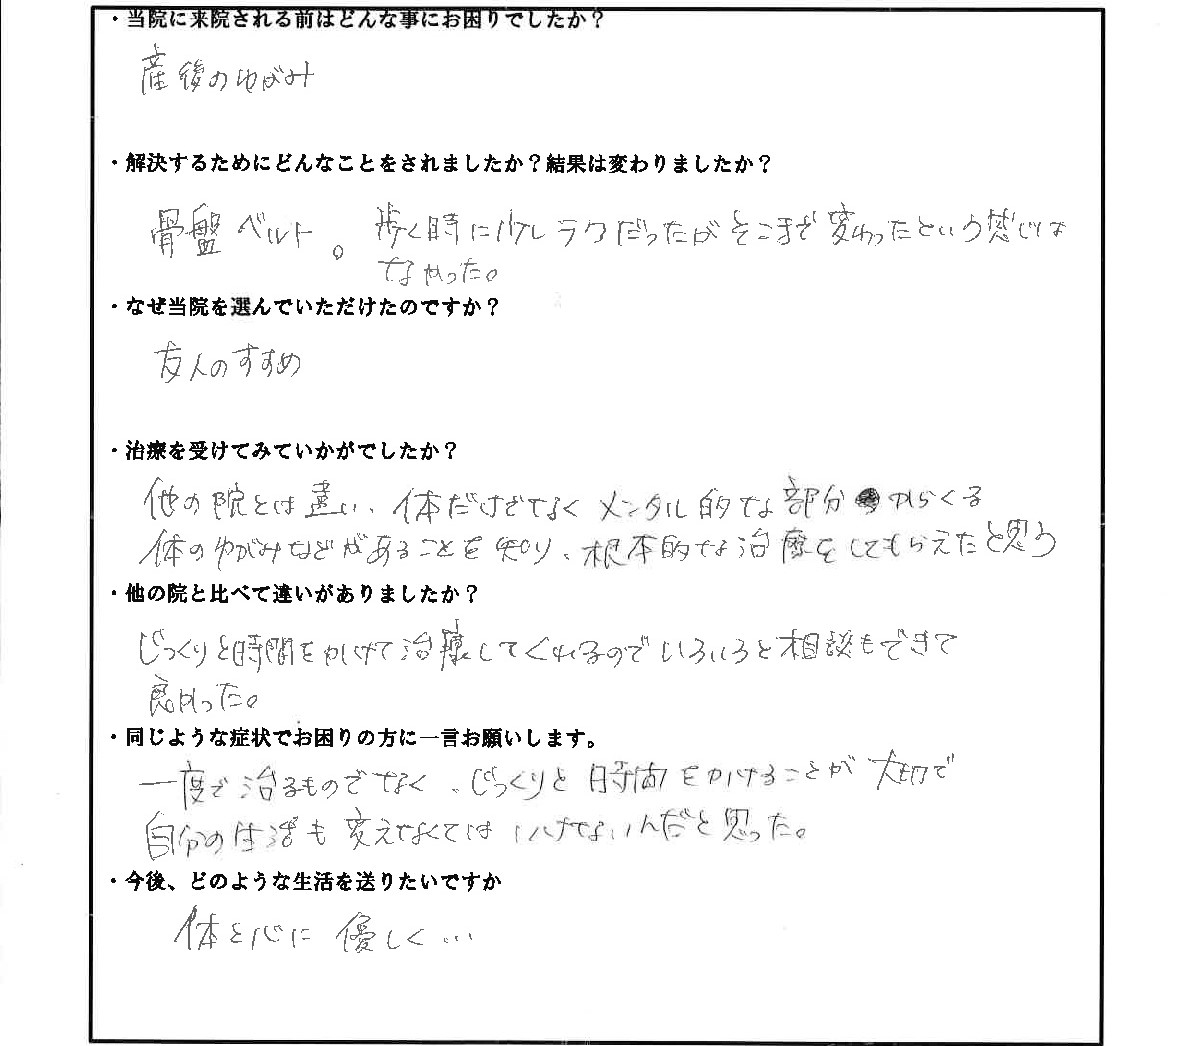 ・当院に来院される前はどんな事にお困りでしたか？
産後のゆがみ
・解決するためにどんなことをされましたか？結果は変わりましたか？
骨盤ベルト。歩く時に少しラクだったがそこまで変わったという感じは
なかった。
・なぜ当院を選んでいただけたのですか？
友人のすすめ
・治療を受けてみていかがでしたか？
他の院とは違い、体だけでなくメンタル的な部分からくる
体のゆがみなどがあることを知り、根本的な治療をしてもらえたと思う
・他の院と比べて違いがありましたか？
じっくりと時間をかけて治療してくれるのでいろいろと相談もできて
良かった。
・同じような症状でお困りの方に一言お願いします。
一度で治るものでなく、じっくりと時間をかけることが大切で
自分の生活も変えなくてはいけないんだと思った。
・今後、どのような生活を送りたいですか
体と心に優しく…